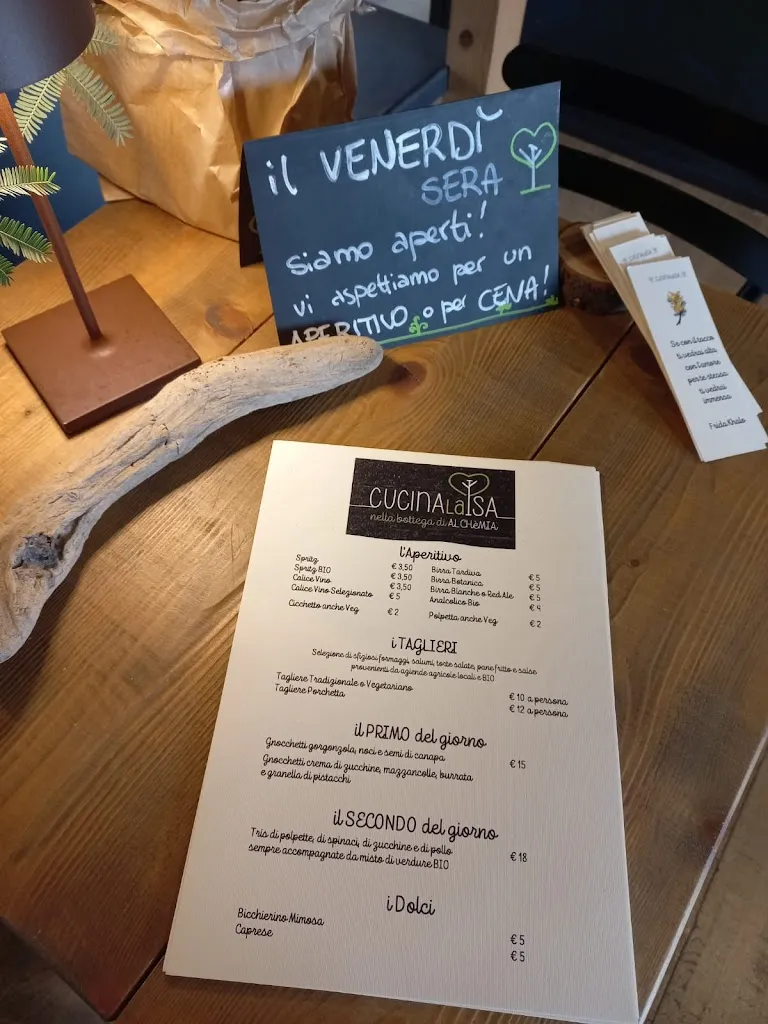 il VENERDÌ
SERA
siamo aperti!
vi aspettiamo per un
APERITIVO o per CENA!
Se con il tacco
ti vedrai alta
con l'amore
per te stessa
ti vedrai
immensa
Frida Khalo
CUCINALaISA
nella bottega di ALCHèMIA
l'Aperitivo
Spritz € 3,50
Spritz BIO € 3,50
Calice Vino € 3,50
Calice Vino Selezionato € 5
Cicchetto anche Veg € 2
Birra Tardiva € 5
Birra Botanica € 5
Birra Blanche o Red Ale € 5
Analcolico Bio € 4
Polpetta anche Veg € 2
i TAGLIERI
Selezione di sfiziosi formaggi, salumi, torte salate, pane fritto e salse
provenienti da aziende agricole locali e BIO
Tagliere Tradizionale o Vegetariano € 10 a persona
Tagliere Porchetta € 12 a persona
il PRIMO del giorno
Gnocchetti gorgonzola, noci e semi di canapa € 15
Gnocchetti crema di zucchine, mazzancolle, burrata
e granella di pistacchi
il SECONDO del giorno
Tris di polpette, di spinaci, di zucchine e di pollo € 18
sempre accompagnate da misto di verdure BIO
i Dolci
Bicchierino Mimosa € 5
Caprese € 5